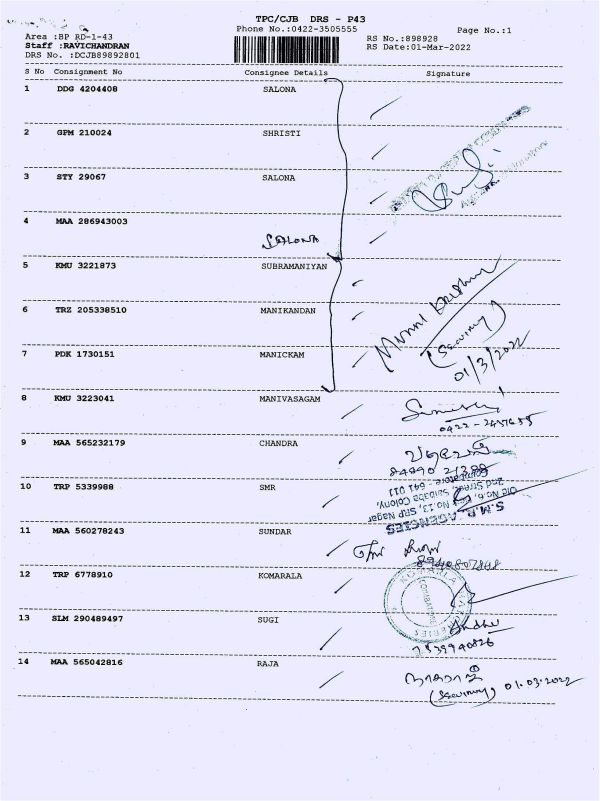 TPC/CJB DRS - P43
Phone No.:0422-3505555
Page No.:1
Area :BP RD-1-43
RS No.:898928
Staff :RAVICHANDRAN
RS Date:01-Mar-2022
DRS No. :DCJB89892801
S No Consignment No Consignee Details Signature
1 DDG 4204408 SALONA
2 GPM 210024 SHRISTI
3 STY 29067 SALONA
4 MAA 286943003
SALONA
5 KMU 3221873 SUBRAMANIYAN
6 TRZ 205338510 MANIKANDAN
(Security)
01/3/2022
7 PDK 1730151 MANICKAM
8 KMU 3223041 MANIVASAGAM
9 MAA 565232179 CHANDRA
10 TRP 5339988 SMR
S.M.R. AGENCIES
SRP Nagar
2nd Street, Saibaba Colony,
Coimbatore - 641 011
11 MAA 560278243 SUNDAR
12 TRP 6778910 KOMARALA
KOMARLA
COIMBATORE
13 SLM 290489497 SUGI
14 MAA 565042816 RAJA
(Security) 01.03.2022